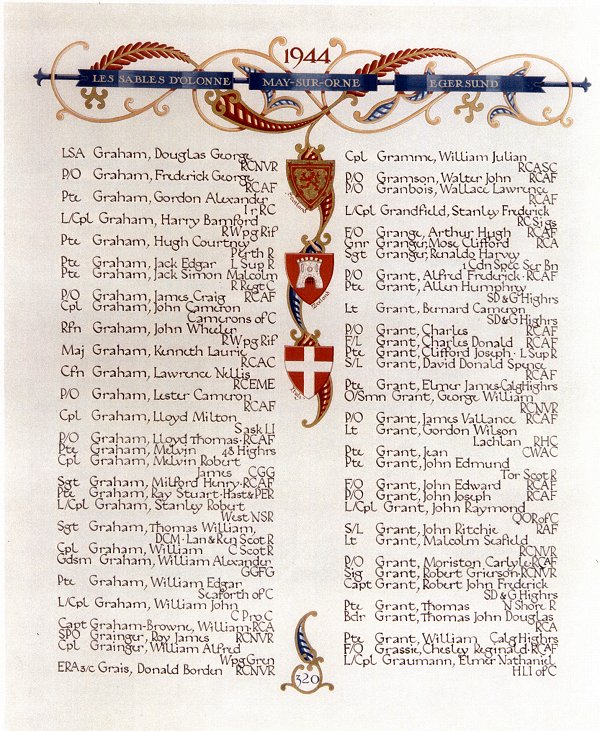 1944
LES SABLES D'OLONNE
MAY-SUR-ORNE
EGERSUND
LSA Graham, Douglas George
RCNVR
P/O Graham, Frederick George
RCAF
Pte Graham, Gordon Alexander
Ir RC
L/Cpl Graham, Harry Bamford
RWpgRif
Pte Graham, Hugh Courtney
Perth R
Pte Graham, Jack Edgar · L Sup R
Pte Graham, Jack Simon Malcolm
R Regt C
P/O Graham, James Craig · RCAF
Cpl Graham, John Cameron
Camerons of C
Rfn Graham, John Wheeler
RWpgRif
Maj Graham, Kenneth Laurie
RCAC
Cfn Graham, Lawrence Nellis
RCEME
P/O Graham, Lester Cameron
RCAF
Cpl Graham, Lloyd Milton
Sask LI
P/O Graham, Lloyd Thomas · RCAF
Pte Graham, Melvin 48 Highrs
Cpl Graham, Melvin Robert
James CGG
Sgt Graham, Milford Henry · RCAF
Pte Graham, Ray Stuart · Hast & PER
L/Cpl Graham, Stanley Robert
West NSR
Sgt Graham, Thomas William,
DCM · Lan & Ren Scot R
Cpl Graham, William C Scot R
Gdsm Graham, William Alexander
GGFG
Pte Graham, William Edgar
Seaforth of C
L/Cpl Graham, William John
C Pro C
Capt Graham-Browne, William · RCA
SPO Grainger, Roy James RCNVR
Cpl Grainger, William Alfred
Wpg Gren
ERA3/c Grais, Donald Borden RCNVR
Cpl Gramme, William Julian
RCASC
P/O Gramson, Walter John RCAF
P/O Granbois, Wallace Lawrence
RCAF
L/Cpl Grandfield, Stanley Frederick
RC Sigs
F/O Grange, Arthur Hugh RCAF
Gnr Granger, Mose Clifford RCA
Sgt Granger, Renaldo Harvey
1 Cdn Spec Ser Bn
P/O Grant, Alfred Frederick · RCAF
Pte Grant, Allen Humphry
SD & G Highrs
Lt Grant, Bernard Cameron
SD & G Highrs
P/O Grant, Charles RCAF
F/L Grant, Charles Donald RCAF
Pte Grant, Clifford Joseph · L Sup R
S/L Grant, David Donald Spence
RCAF
Pte Grant, Elmer James · Calg Highrs
O/Smn Grant, George William
RCNVR
P/O Grant, James Vallance RCAF
Lt Grant, Gordon Wilson
Lachlan RHC
Pte Grant, Jean CWAC
Pte Grant, John Edmund
Tor Scot R
F/O Grant, John Edward RCAF
P/O Grant, John Joseph RCAF
L/Cpl Grant, John Raymond
QOR of C
S/L Grant, John Ritchie RAF
Lt Grant, Malcolm Seafield
RCNVR
P/O Grant, Moriston Carlyle · RCAF
Sig Grant, Robert Grierson · RCNVR
Capt Grant, Robert John Frederick
SD & G Highrs
Pte Grant, Thomas N Shore R
Bdr Grant, Thomas John Douglas
RCA
Pte Grant, William Calg Highrs
F/O Grassie, Chesley Reginald · RCAF
L/Cpl Graumann, Elmer Nathaniel
HLI of C
320